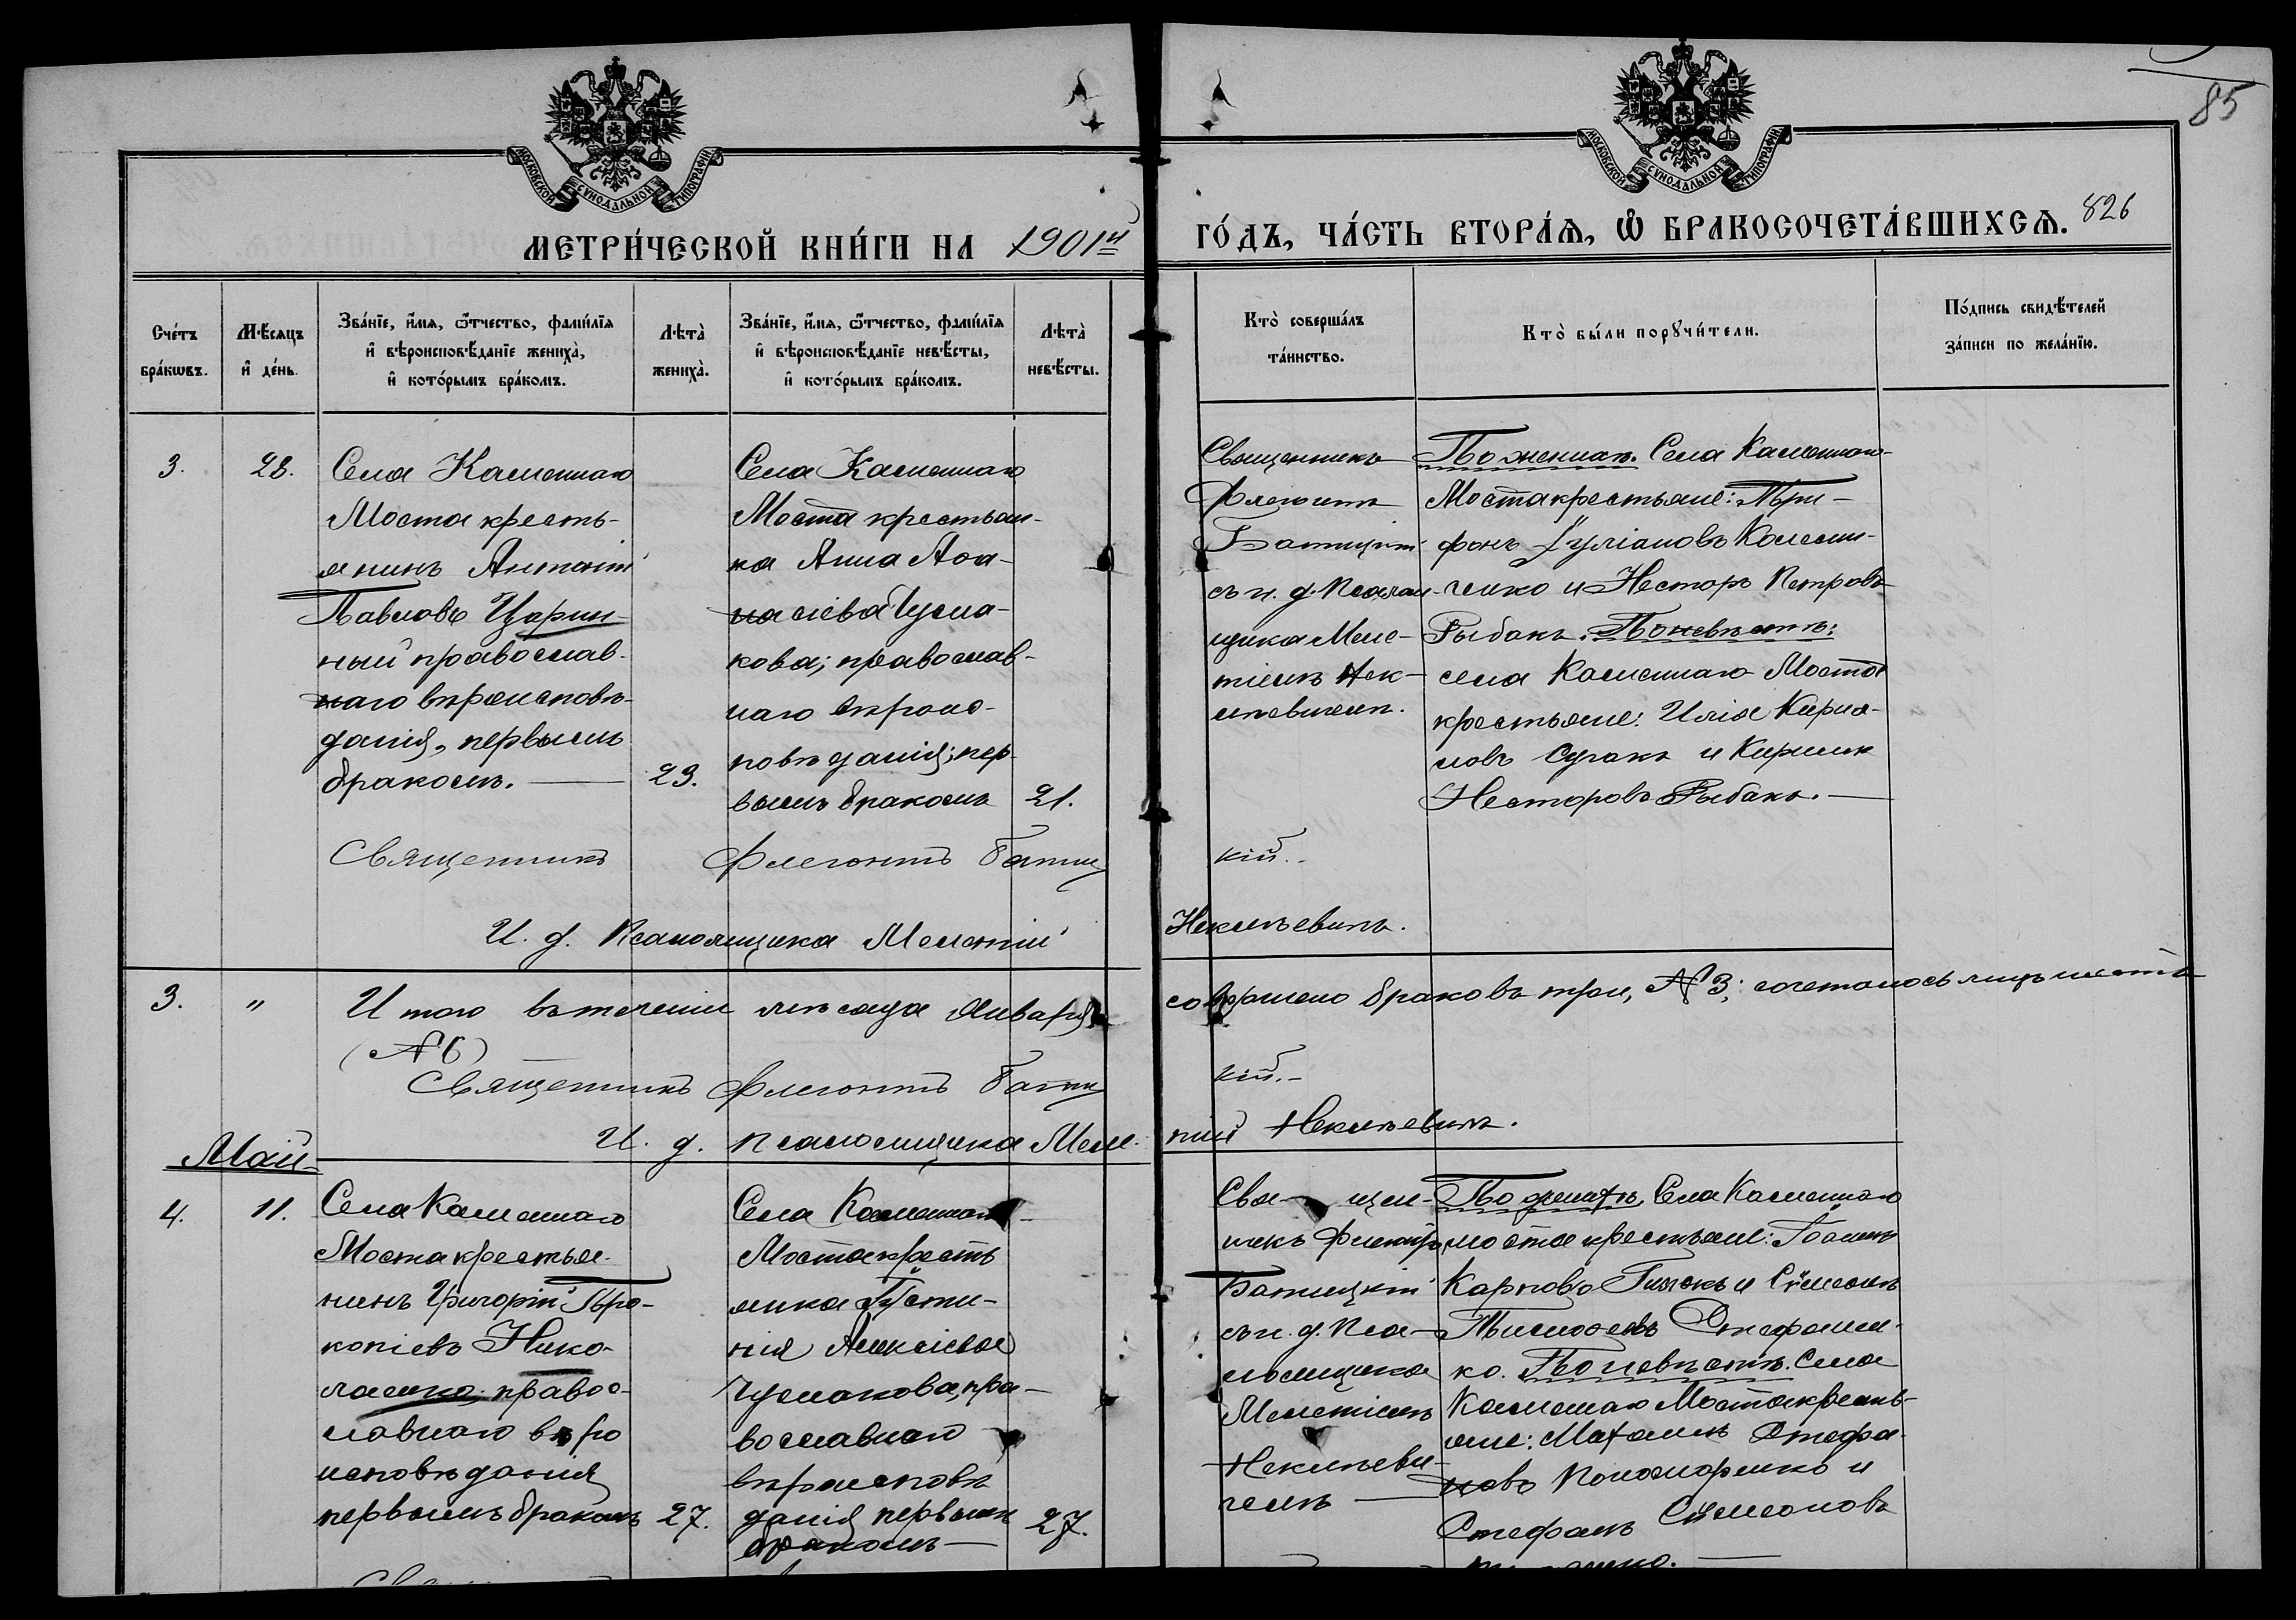 85
МОСКОВСКОЙ СѴНОДАЛЬНОЙ ТИПОГРАФІИ
МОСКОВСКОЙ СѴНОДАЛЬНОЙ ТИПОГРАФІИ
МЕТРИ́ЧЕСКОЙ КНИ́ГИ НА 1901й
ГО́ДЪ, ЧА́СТЬ ВТОРА́Ѧ, Ѽ БРАКОСОЧЕТА́ВШИХСѦ. 826
Сче́тъ
бра́кѡвъ.
Мѣ́сяцъ
и҆ де́нь.
Зва́нїе, и҆́мѧ, ѻ҆́тчество, фами́лїѧ
и҆ вѣроисповѣ́данїе жениха̀,
и҆ кото́рымъ бра́комъ.
Лѣта̀
жениха̀.
Зва́нїе, и҆́мѧ, ѻ҆́тчество, фами́лїѧ
и҆ вѣроисповѣ́данїе невѣ́сты,
и҆ кото́рымъ бра́комъ.
Лѣта̀
невѣ́сты.
Кто̀ соверша́лъ
та́инство.
Кто̀ бы́ли порꙋчи́тели.
По́дпись свидѣ́телей
за́писи по жела́нїю.
3.
28.
Села Каменнаго
Моста кресть-
янинъ Антоній
Павловъ Царин-
ный православ-
наго вѣроисповѣ-
данія, первымъ
бракомъ.
23.
Села Каменнаго
Моста крестьян-
ка Анна Афа-
насіева Чума-
кова; православ-
наго вѣроис-
повѣданія; пер-
вымъ бракомъ
21.
Священникъ
Флегонтъ
Батицкій
съ и. д. Псалом-
щика Меле-
тіемъ Нек-
По женихѣ. Села Каменнаго
Моста крестьяне: Три-
фонъ Іуліановъ Колесни-
ченко и Несторъ Петровъ
Рыбакъ. По невѣстѣ:
села Каменнаго Моста
крестьяне: Илія Кирил-
ловъ Сугакъ и Кирилл
Несторовъ Рыбакъ.
Священникъ Флегонтъ Батиц кій.
И. д. Псаломщика Мелетій Неклѣевичъ.
3. " Итого въ теченіи мѣсяца Января совершено браковъ три, №3; сочеталось лицъ шесть
(№ 6)
Священникъ Флегонтъ Батиц кій.
И. д. псаломщика Меле- тій Неклѣевичъ.
Май
4.
11.
Села Каменнаго
Моста крестья-
нинъ Григорій Про-
копіевъ Нико-
лаенко; право-
славнаго вѣро
исповѣданія
первымъ бракомъ
27.
Села Каменнаго
Моста кресть
янка
Алексіева
Чумакова, пра-
вославнаго
вѣроисповѣ
данія первымъ
бракомъ
27.
Свя- щен-
никъ Флегонтъ
Батицкій
съ и. д. Пса-
ломщика
Мелетіемъ
Неклѣеви-
чемъ
По женихѣ, Села Каменнаго
моста крестьяне:
Карповъ и Сѷмеонъ
Стефанен-
ко. По невѣстѣ. Села
Каменнаго Моста кресть-
яне: Стефа-
новъ Пономаренко и
Стефанъ Сѷмеоновъ